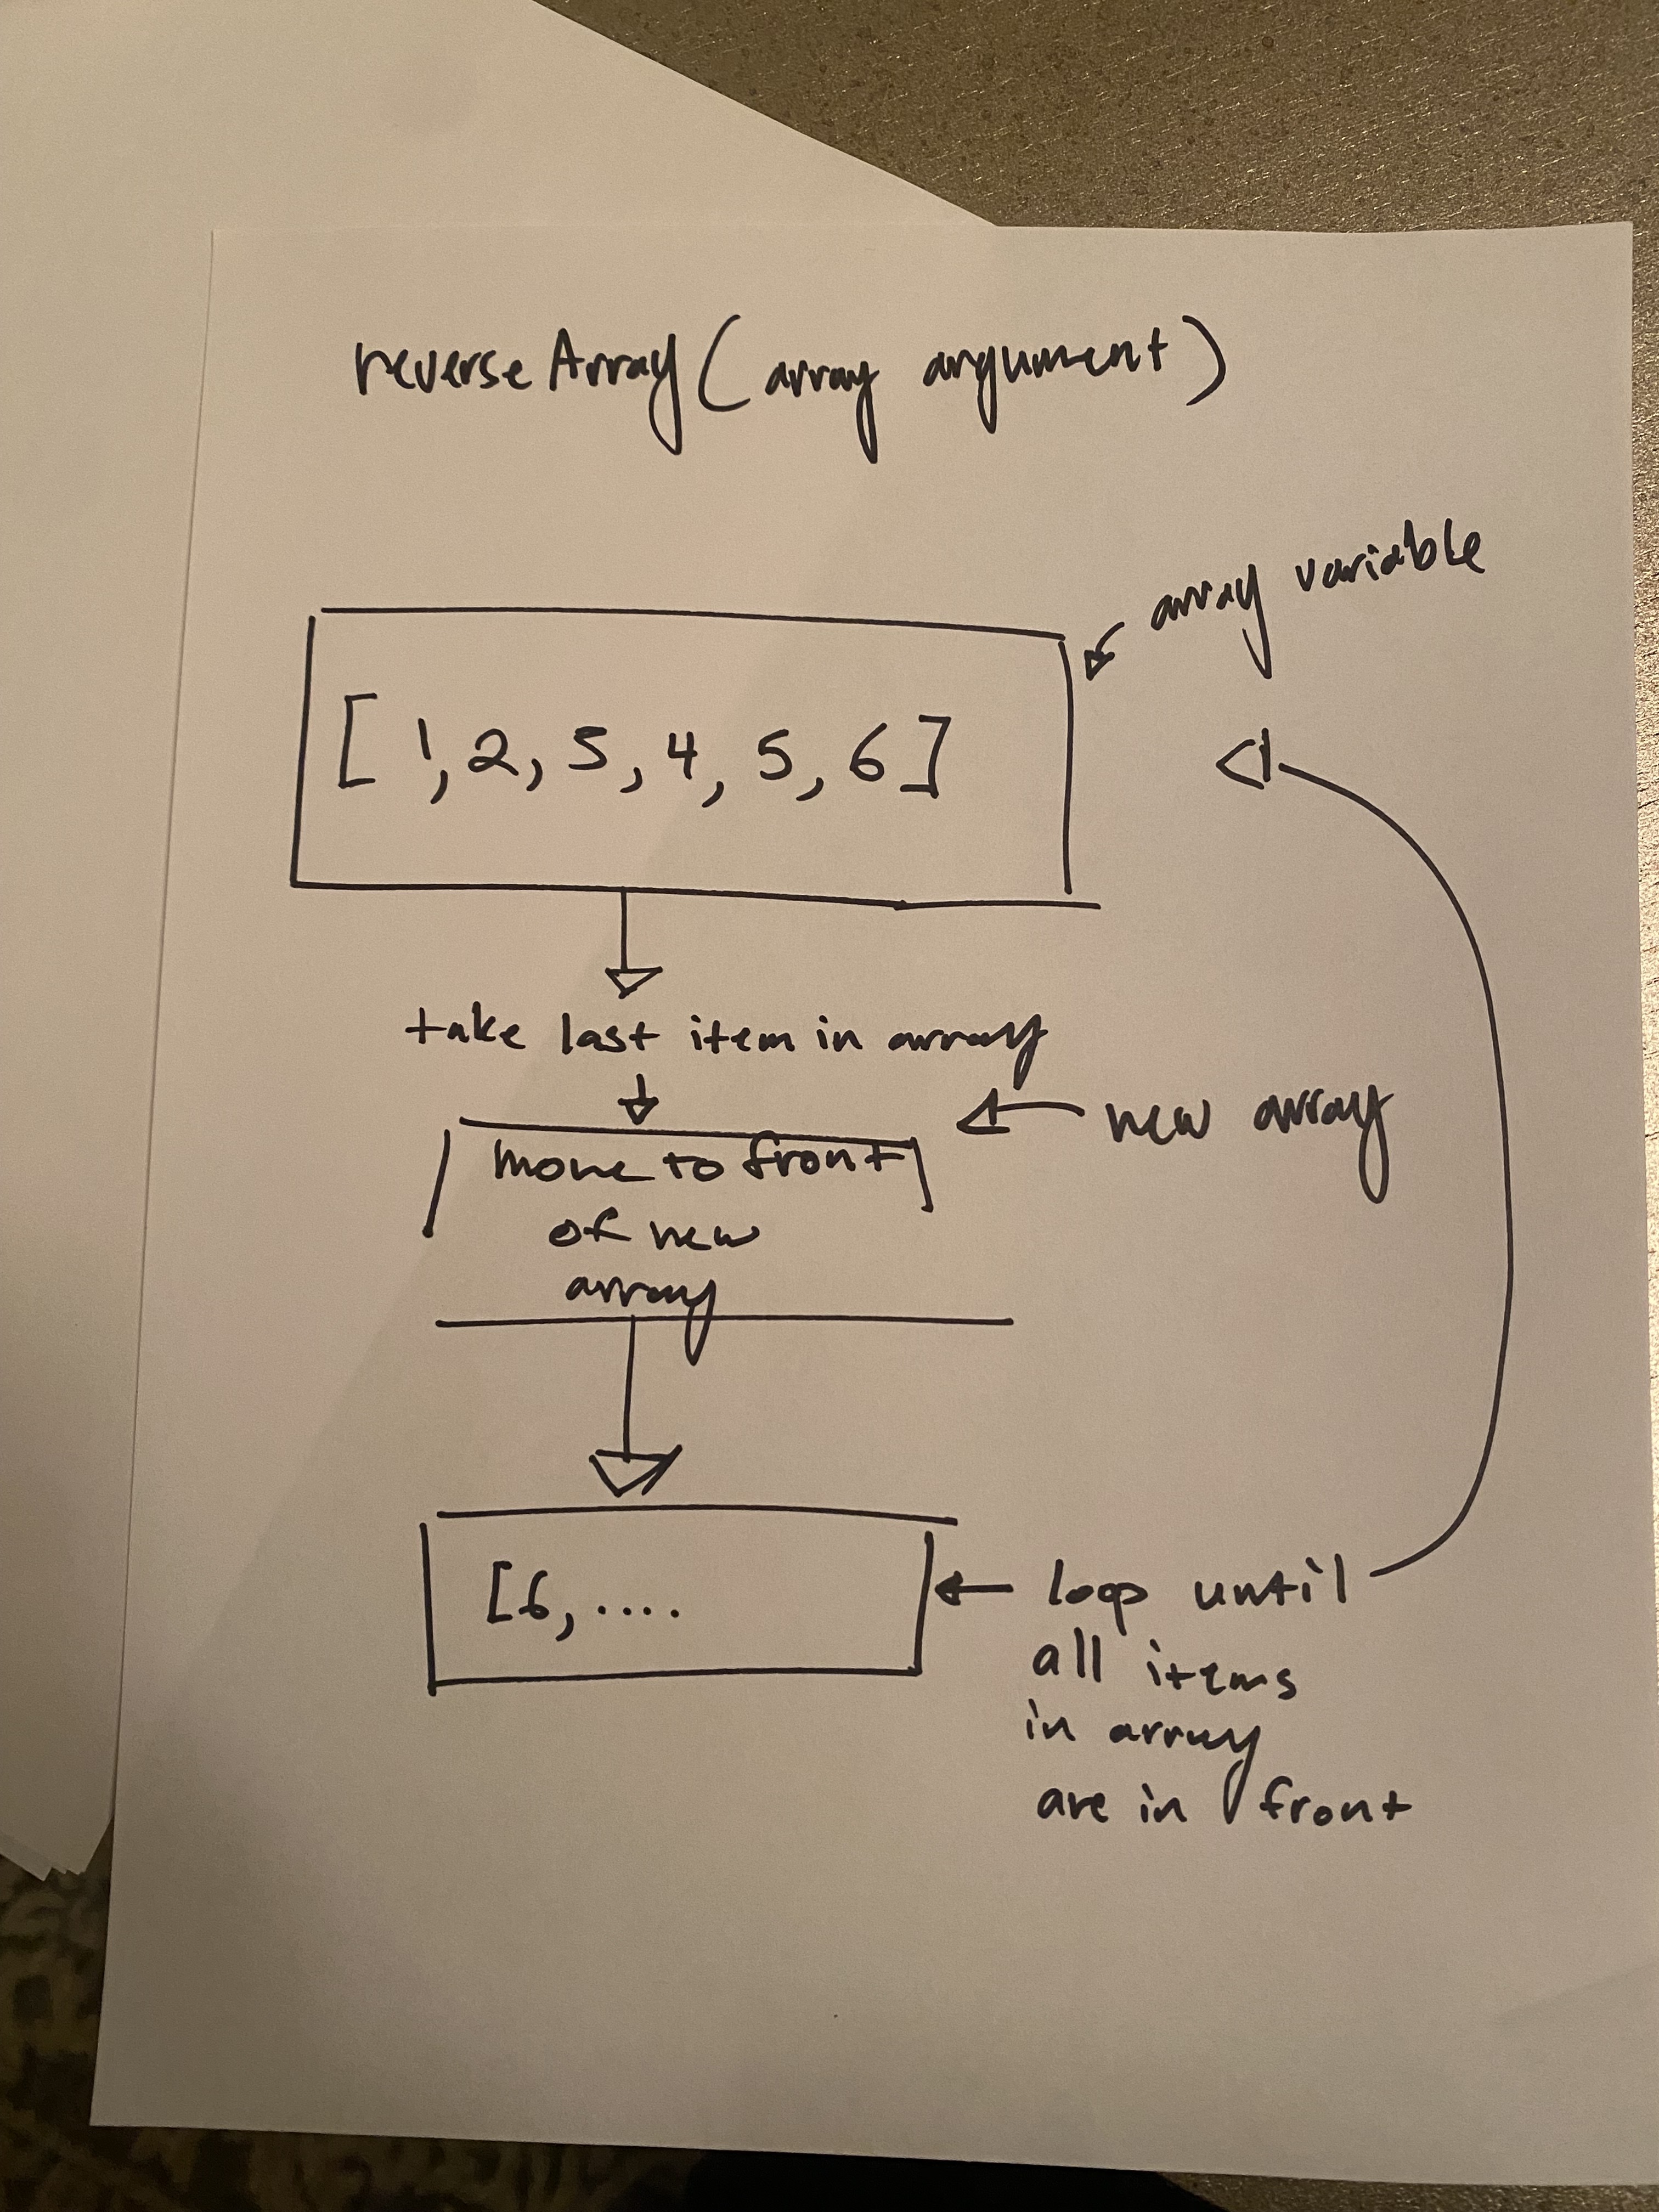 reverseArray(array argument)
array variable
[1, 2, 5, 4, 5, 6]
take last item in array
new array
move to front
of new
array
[6, ....
loop until
all items
in array
are in front